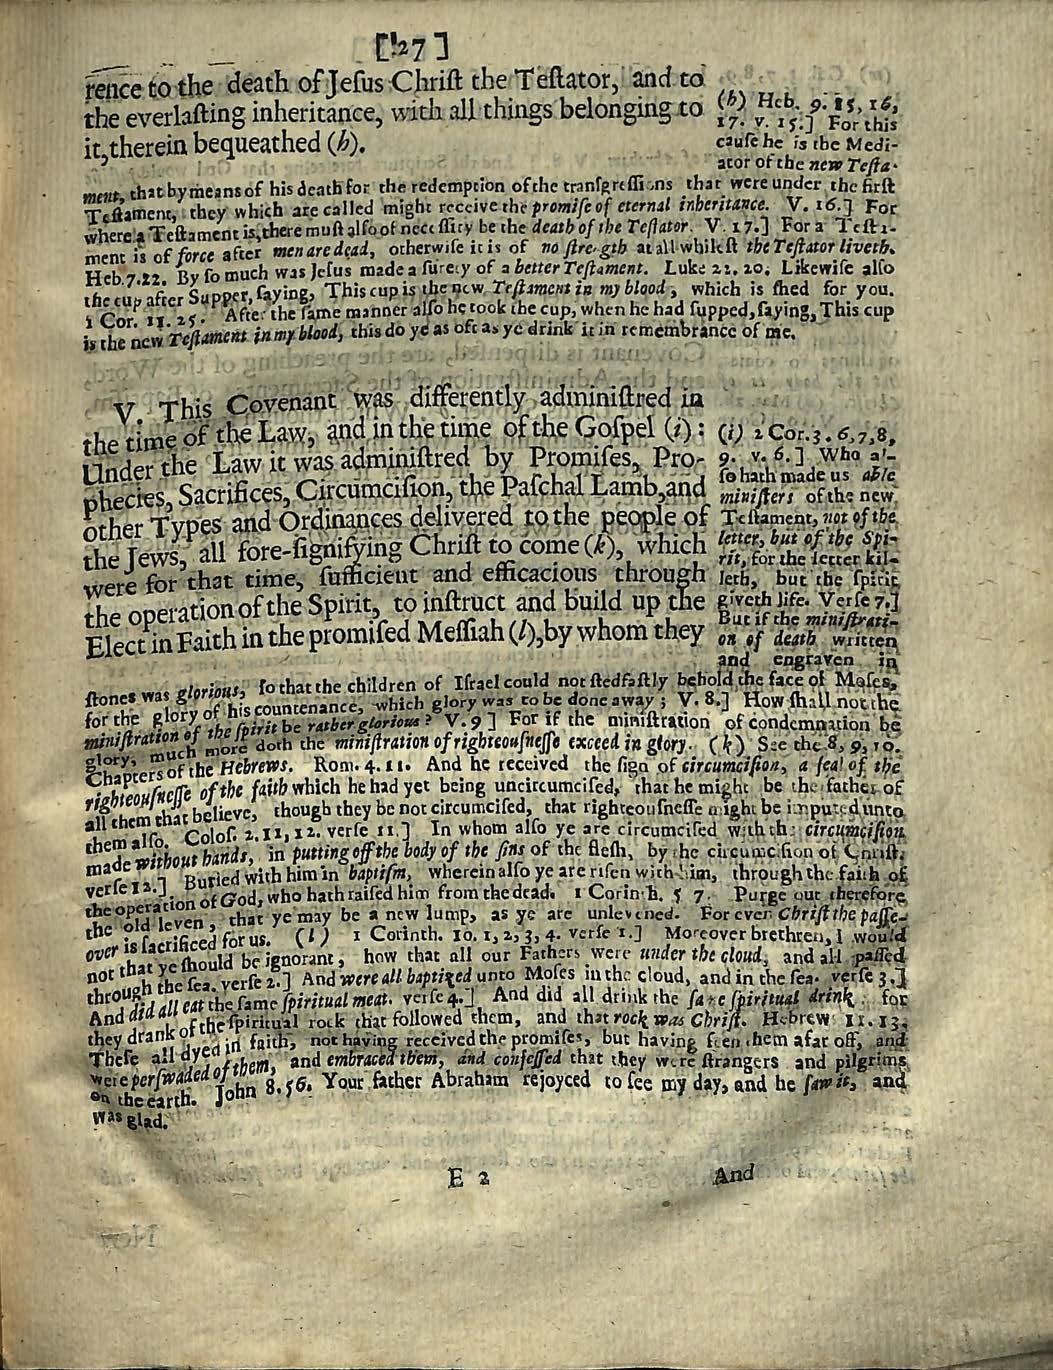 [27]
rence to the death of Jeſus Chriſt the Teſtator, and to
the everlaſting inheritance, with all things belonging to
it, therein bequeathed (h).
(h) Heb. 9. 15, 16,
17. v. 15.] For this
cauſe he is the Medi-
ator of the new Teſta-
ment, that by means of his death for the redemption of the tranſgreſſions that were under the firſt
Teſtament, they which are called might receive the promiſe of eternal inheritance. V. 16.] For
where a Teſtament is, there muſt alſo of neceſſity be the death of the Teſtator. V. 17.] For a Teſta-
ment is of force after men are dead, otherwiſe it is of no ſtrength at all whileſt the Teſtator liveth.
Heb. 7. 22. By ſo much was Jeſus made a ſurety of a better Teſtament. Luke 22. 20. Likewiſe alſo
the cup after Supper, ſaying, This cup is the new Teſtament in my blood, which is ſhed for you.
1 Cor. 11. 25. After the ſame manner alſo he took the cup, when he had ſupped, ſaying, This cup
is the new Teſtament in my blood, this do ye as oft as ye drink it in remembrance of me.
V. This Covenant was differently adminiſtred in
the time of the Law, and in the time of the Goſpel (i):
Under the Law it was adminiſtred by Promiſes, Pro-
phecies, Sacrifices, Circumciſion, the Paſchal Lamb, and
other Types and Ordinances delivered to the people of
the Jews, all fore-ſignifying Chriſt to come (k), which
were for that time, ſufficient and efficacious through
the operation of the Spirit, to inſtruct and build up the
Elect in Faith in the promiſed Meſſiah (l), by whom they
(i) 2 Cor. 3. 6, 7, 8,
9. v. 6.] Who al-
ſo hath made us able
miniſters of the new
Teſtament, not of the
letter, but of the Spi-
rit, for the letter kil-
leth, but the ſpirit
giveth life. Verſe 7.]
But if the miniſtrati-
on of death written
and engraven in
ſtones was glorious, ſo that the children of Iſrael could not ſtedfaſtly behold the face of Moſes,
for the glory of his countenance, which glory was to be done away; V. 8.] How ſhall not the
miniſtration of the ſpirit be rather glorious? V. 9] For if the miniſtration of condemnation be
glory, much more doth the miniſtration of righteouſneſſe exceed in glory. (k) See the 8, 9, 10.
Chapters of the Hebrews. Rom. 4. 11. And he received the ſign of circumciſion, a ſeal of the
righteouſneſſe of the faith which he had yet being uncircumciſed, that he might be the father of
all them that believe, though they be not circumciſed, that righteouſneſſe might be imputed unto
them alſo. Coloſ. 2. 11, 12. verſe 11.] In whom alſo ye are circumciſed with the circumciſion
made without hands, in putting off the body of the ſins of the fleſh, by the circumciſion of Chriſt.
verſe 12.] Buried with him in baptiſm, wherein alſo ye are riſen with him, through the faith of
the operation of God, who hath raiſed him from the dead. 1 Corinth. 5 7. Purge out therefore
the old leven, that ye may be a new lump, as ye are unlevened. For even Chriſt the paſſe-
over is ſacrificed for us. (l) 1 Corinth. 10. 1, 2, 3, 4. verſe 1.] Moreover brethren, I would
not that ye ſhould be ignorant, how that all our Fathers were under the cloud, and all paſſed
through the ſea. verſe 2.] And were all baptized unto Moſes in the cloud, and in the ſea. verſe 3.]
And did all eat the ſame ſpiritual meat. verſe 4.] And did all drink the ſame ſpiritual drink, for
they drank of the ſpiritual rock that followed them, and that rock was Chriſt. Hebrews 11. 13.
Theſe all dyed in faith, not having received the promiſes, but having ſeen them afar off, and
were perſwaded of them, and embraced them, and confeſſed that they were ſtrangers and pilgrims
on the earth. John 8. 56. Your father Abraham rejoyced to ſee my day, and he ſaw it, and
was glad.
E 2
And